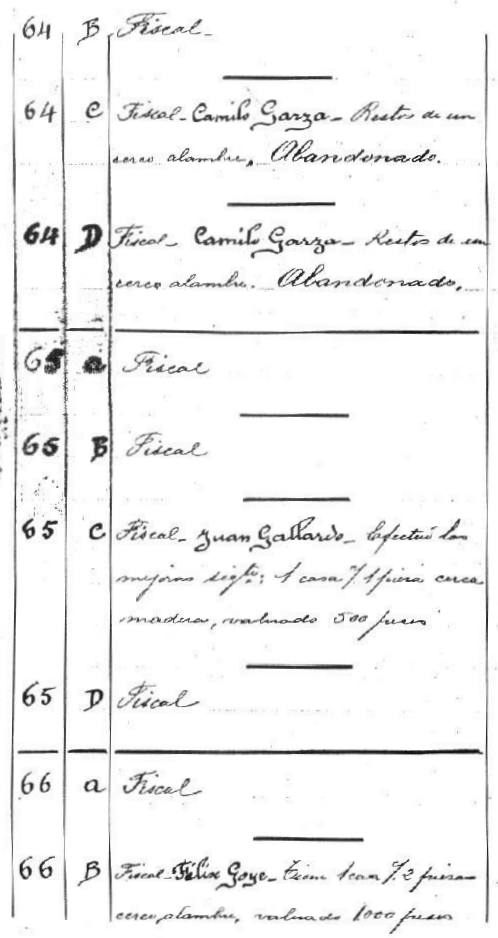 64 B Fiscal -
64 C Fiscal - Camilo Garza - Restos de un
cerco alambre, Abandonado.
64 D Fiscal - Camilo Garza - Restos de un
cerco alambre. Abandonado.
65 a Fiscal
65 B Fiscal
65 C Fiscal - Juan Gallardo - Efectuó las
mejoras sigte: 1 casa 1 pieza cerco
madera, valuado 500 pesos
65 D Fiscal
66 a Fiscal
66 B Fiscal - Félix Goye - tiene 1 casa 2 piezas
cerco alambre, valuado 1000 pesos